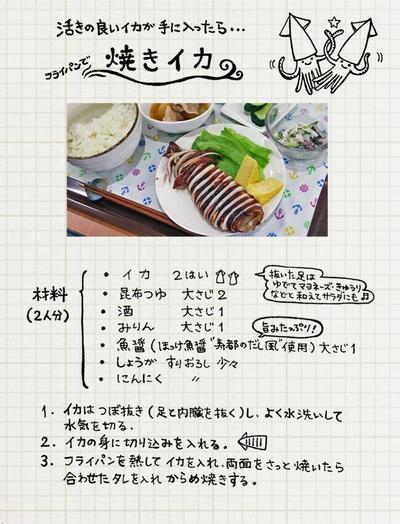 活きの良いイカが手に入ったら…
フライパンで 焼きイカ
材料
(2人分)
・イカ 2はい
・昆布つゆ 大さじ2
・酒 大さじ1
・みりん 大さじ1
・魚醤(ほっけ魚醤"寿都のだし風"使用)大さじ1
・しょうが すりおろし 少々
・にんにく 〃
抜いた足は
ゆでてマヨネーズ・きゅうり
などと和えてサラダにも♫
旨みたっぷり!
1. イカはつぼ抜き(足と内臓を抜く)し、よく水洗いして
水気を切る。
2. イカの身に切り込みを入れる。
3. フライパンを熱してイカを入れ、両面をさっと焼いたら
合わせたタレを入れ からめ焼きする。